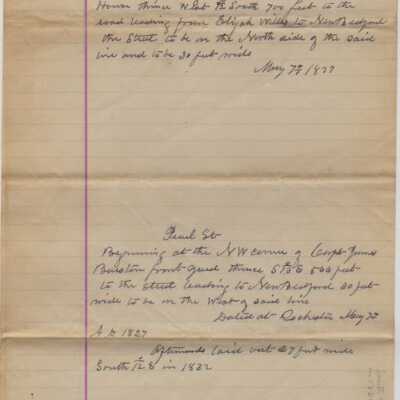 House thence N Est 1/2 South 700 feet to the
road leading from Elijah Willis to New Bedford
the Street to be on the North side of the said
line and to be 30 feet wide
May 7th 1827
Pearl St
Beginning at the N W corner of Capt James
Barston front yard thence S 500 feet
to the Street leading to New Bedford 30 feet
wide to be on the West of said line
Dated at Rochester May
A D 1827
Afterwards laid out 27 feet wide
South E in 1832